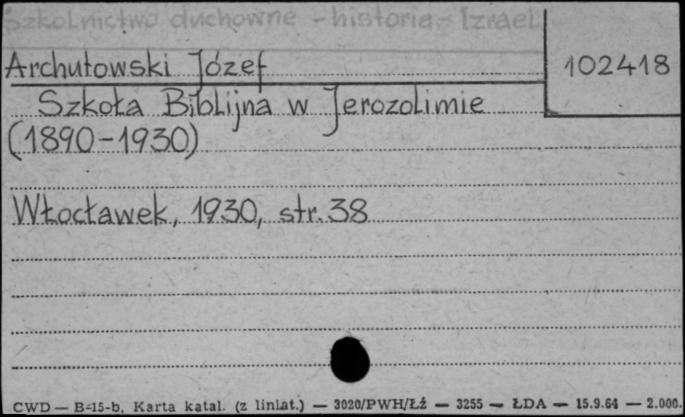 Szkolnictwo duchowne - historia - Izrael
Archutowski Józef
102418
Szkoła Biblijna w Jerozolimie
(1890-1930)
Włocławek, 1930, str. 38
CWD — B-15-b, Karta katal. (z liniat.) — 3020/PWH/Łź — 3255 — ŁDA — 15.9.64 — 2.000.